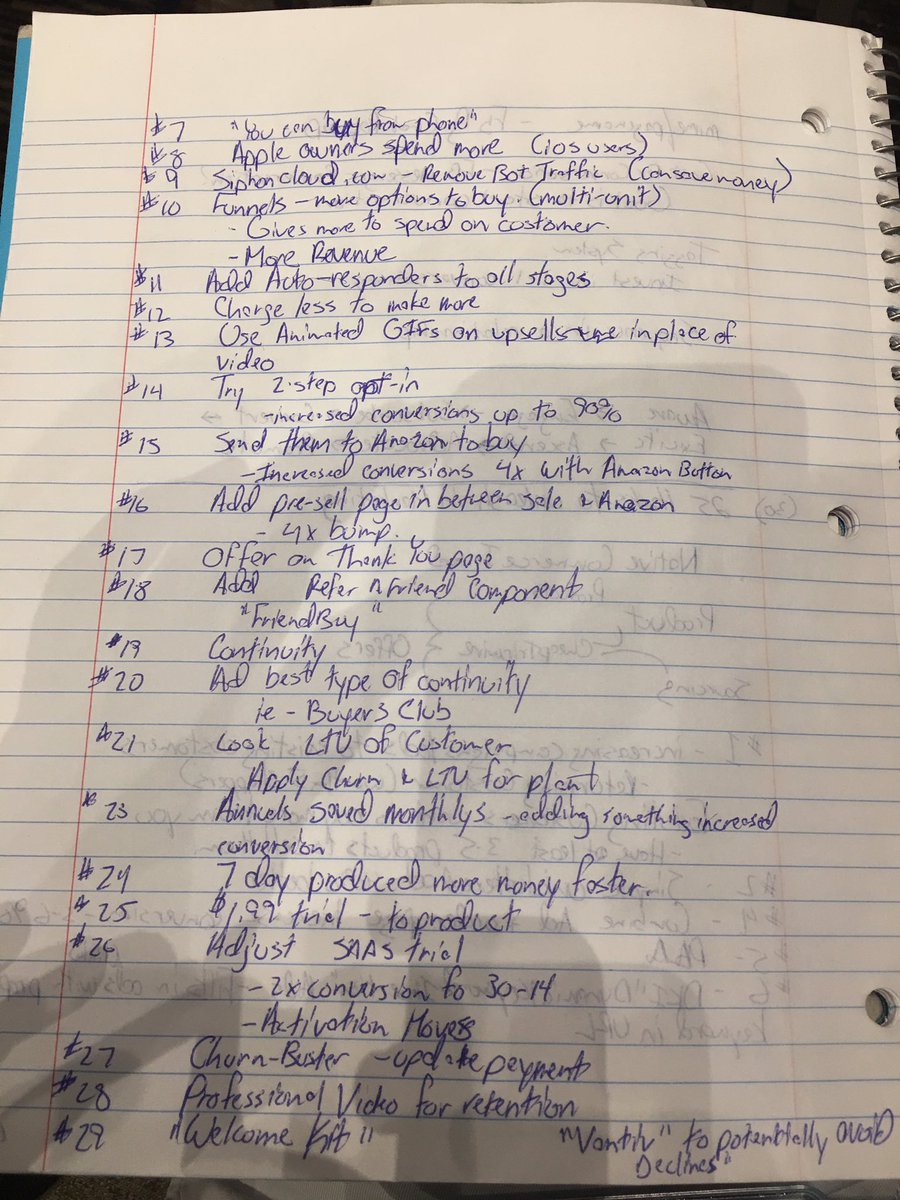 #7 "You can buy from phone"
#8 Apple owners spend more (ios users)
#9 Siphoncloud.com - Remove Bot Traffic (can save money)
#10 Funnels - more options to buy. (multi-unit)
- Gives more to spend on customer.
- More Revenue
#11 Add Auto-responders to all stages
#12 Charge less to make more
#13 Use Animated GIFs on upsells in place of
video
#14 Try 2-step opt-in
- increased conversions up to 90%
#15 Send them to Amazon to buy
- Increased conversions 4x with Amazon Button
#16 Add pre-sell page in between sale & Amazon
- 4x bump.
#17 Offer on Thank You page
#18 Add Refer A Friend Component
"FriendBuy"
#19 Continuity
#20 Ad best type of continuity
ie - Buyers Club
#21 Look LTV of Customer
Apply Churn & LTV for
#23 Annuals saved monthlys - adding something increased
conversion
#24 7 day produced more money faster.
#25 $1.99 trial - to product
#26 Adjust SAAS trial
- 2x conversion to 30-14
- Activation
#27 Churn-Buster - update payment
#28 Professional Video for retention
#29 "Welcome Kit" "Vantiv" to potentially avoid
Declines"